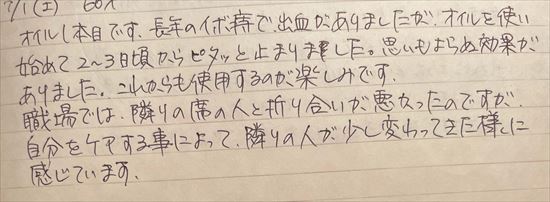 7/1(土) 60人
オイル1本目です。長年のイボ痔で、出血がありましたが、オイルを使い
始めて2〜3日頃からピタッと止まりました。思いもよらぬ効果が
ありました。これからも使用するのが楽しみです。
職場では、隣りの席の人と折り合いが悪かったのですが、
自分をケアする事によって、隣りの人が少し変わってきた様に
感じています。